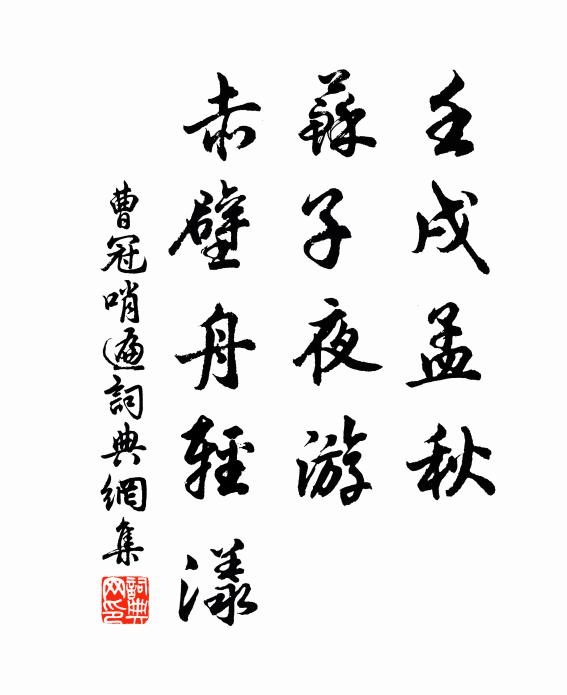 壬戌孟秋
蘇子夜游
赤壁舟輕漾
曹冠哨遍詞典網集
詞典网印